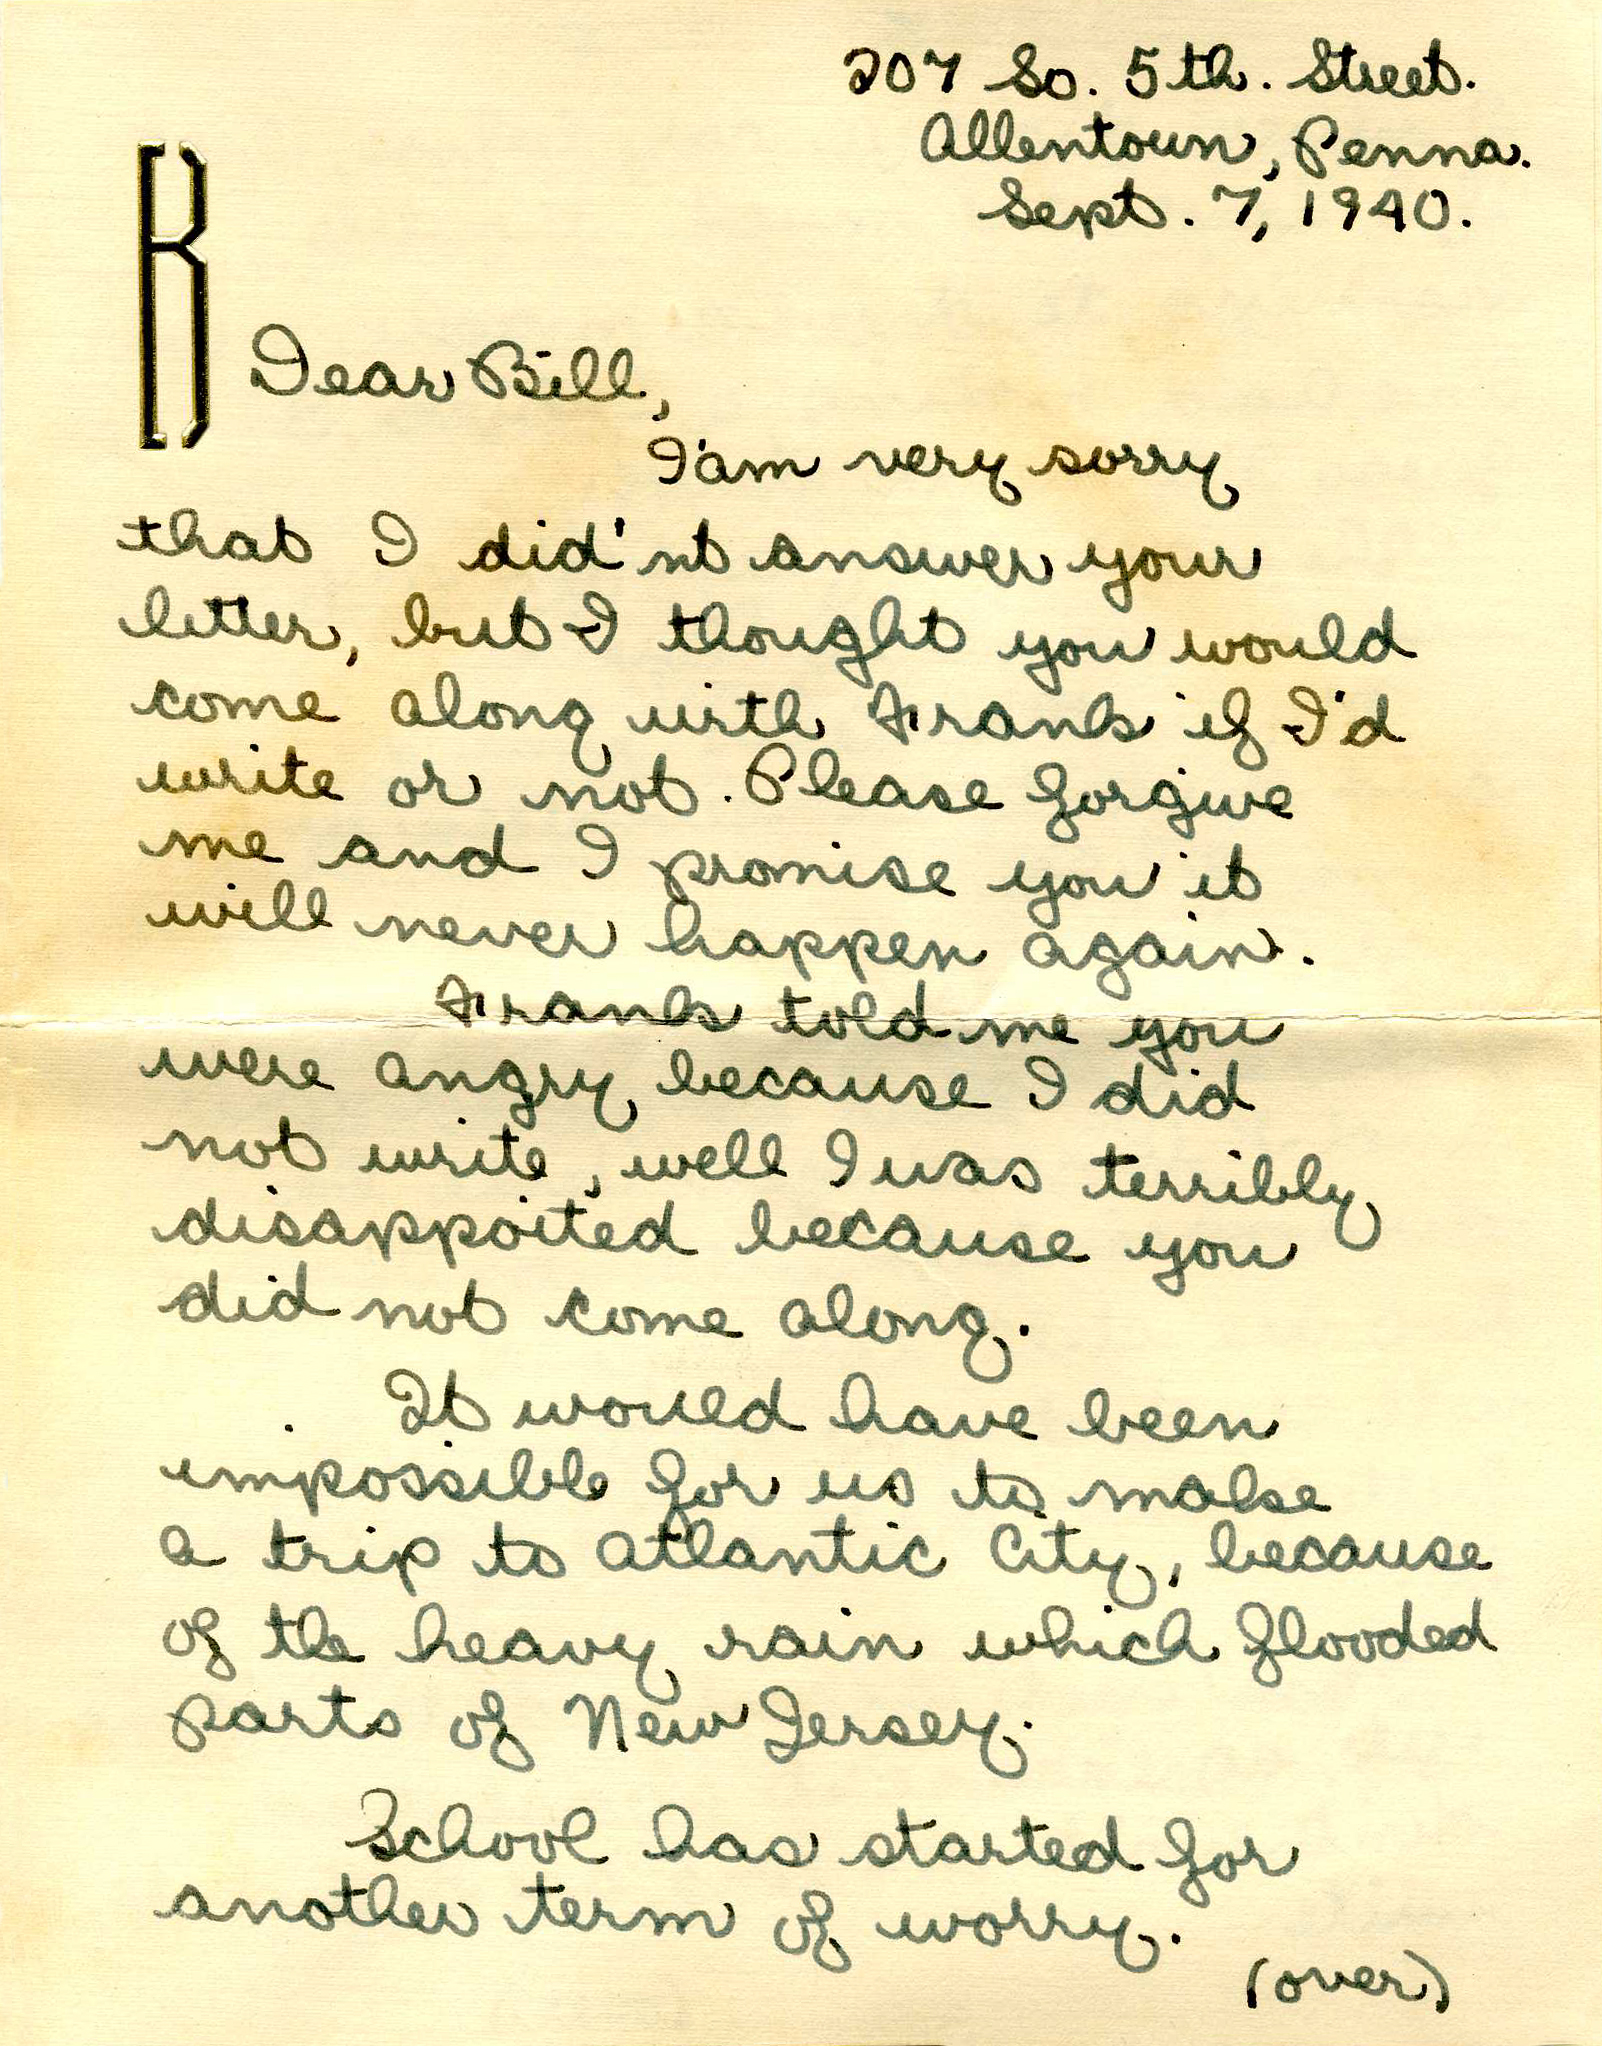 207 So. 5th. Street.
Allentown, Penna.
Sept. 7, 1940.
R
Dear Bill,
I'am very sorry
that I did'nt answer your
letter, but I thought you would
come along with Frank if I'd
write or not. Please forgive
me and I promise you it
will never happen again.
Frank told me you
were angry because I did
not write, well I was terribly
disappoited because you
did not come along.
It would have been
impossible for us to make
a trip to Atlantic City, because
of the heavy rain which flooded
parts of New Jersey.
School has started for
another term of worry.
(over)